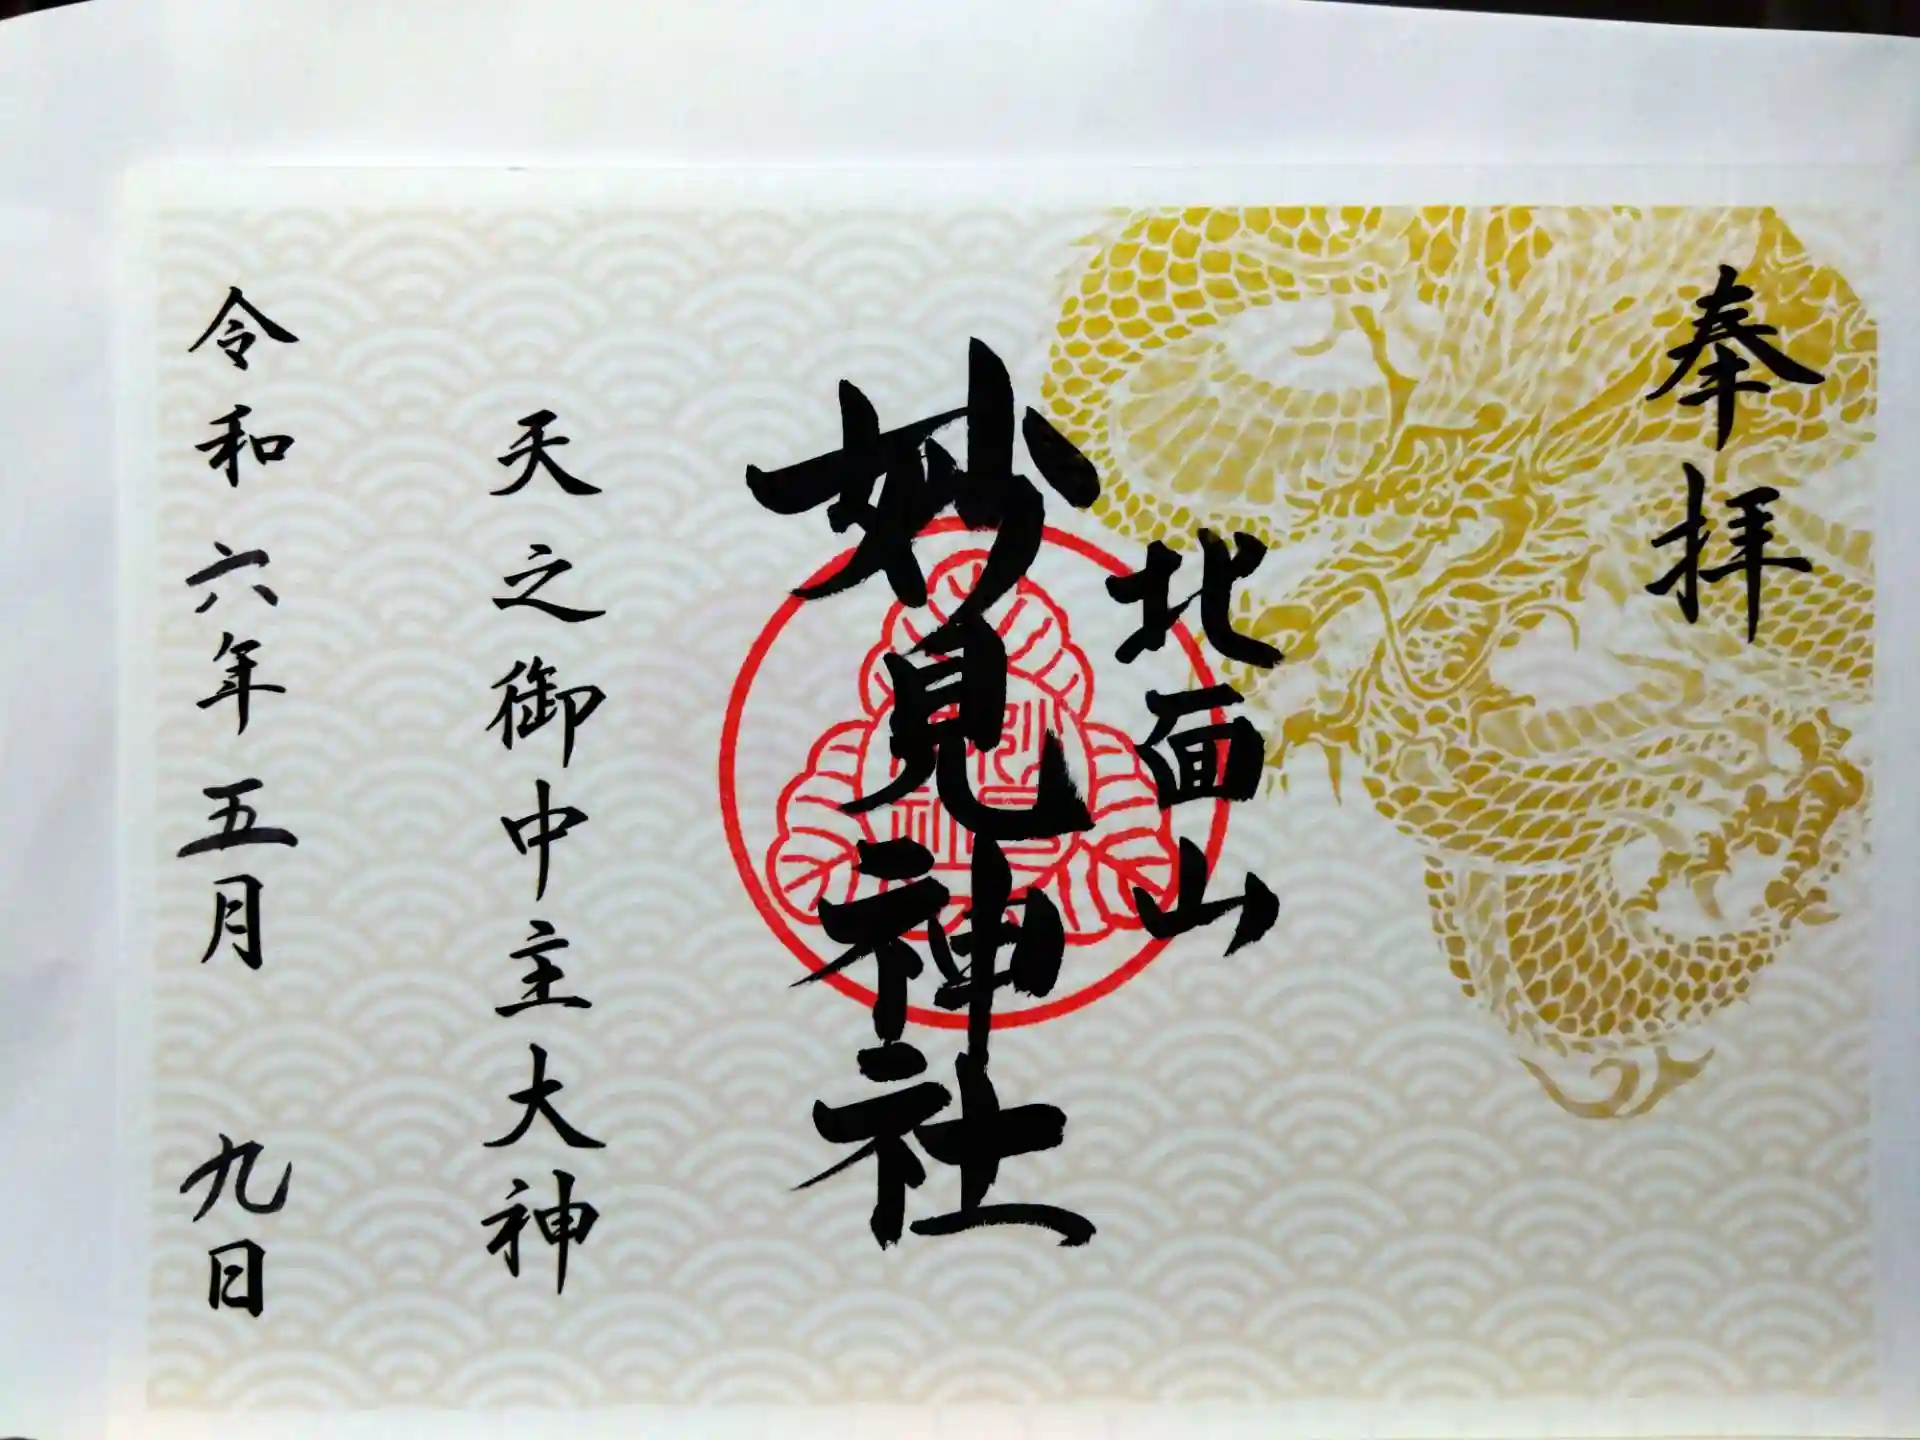 奉拝
北面山
妙見神社
天之御中主大神
令和六年五月九日